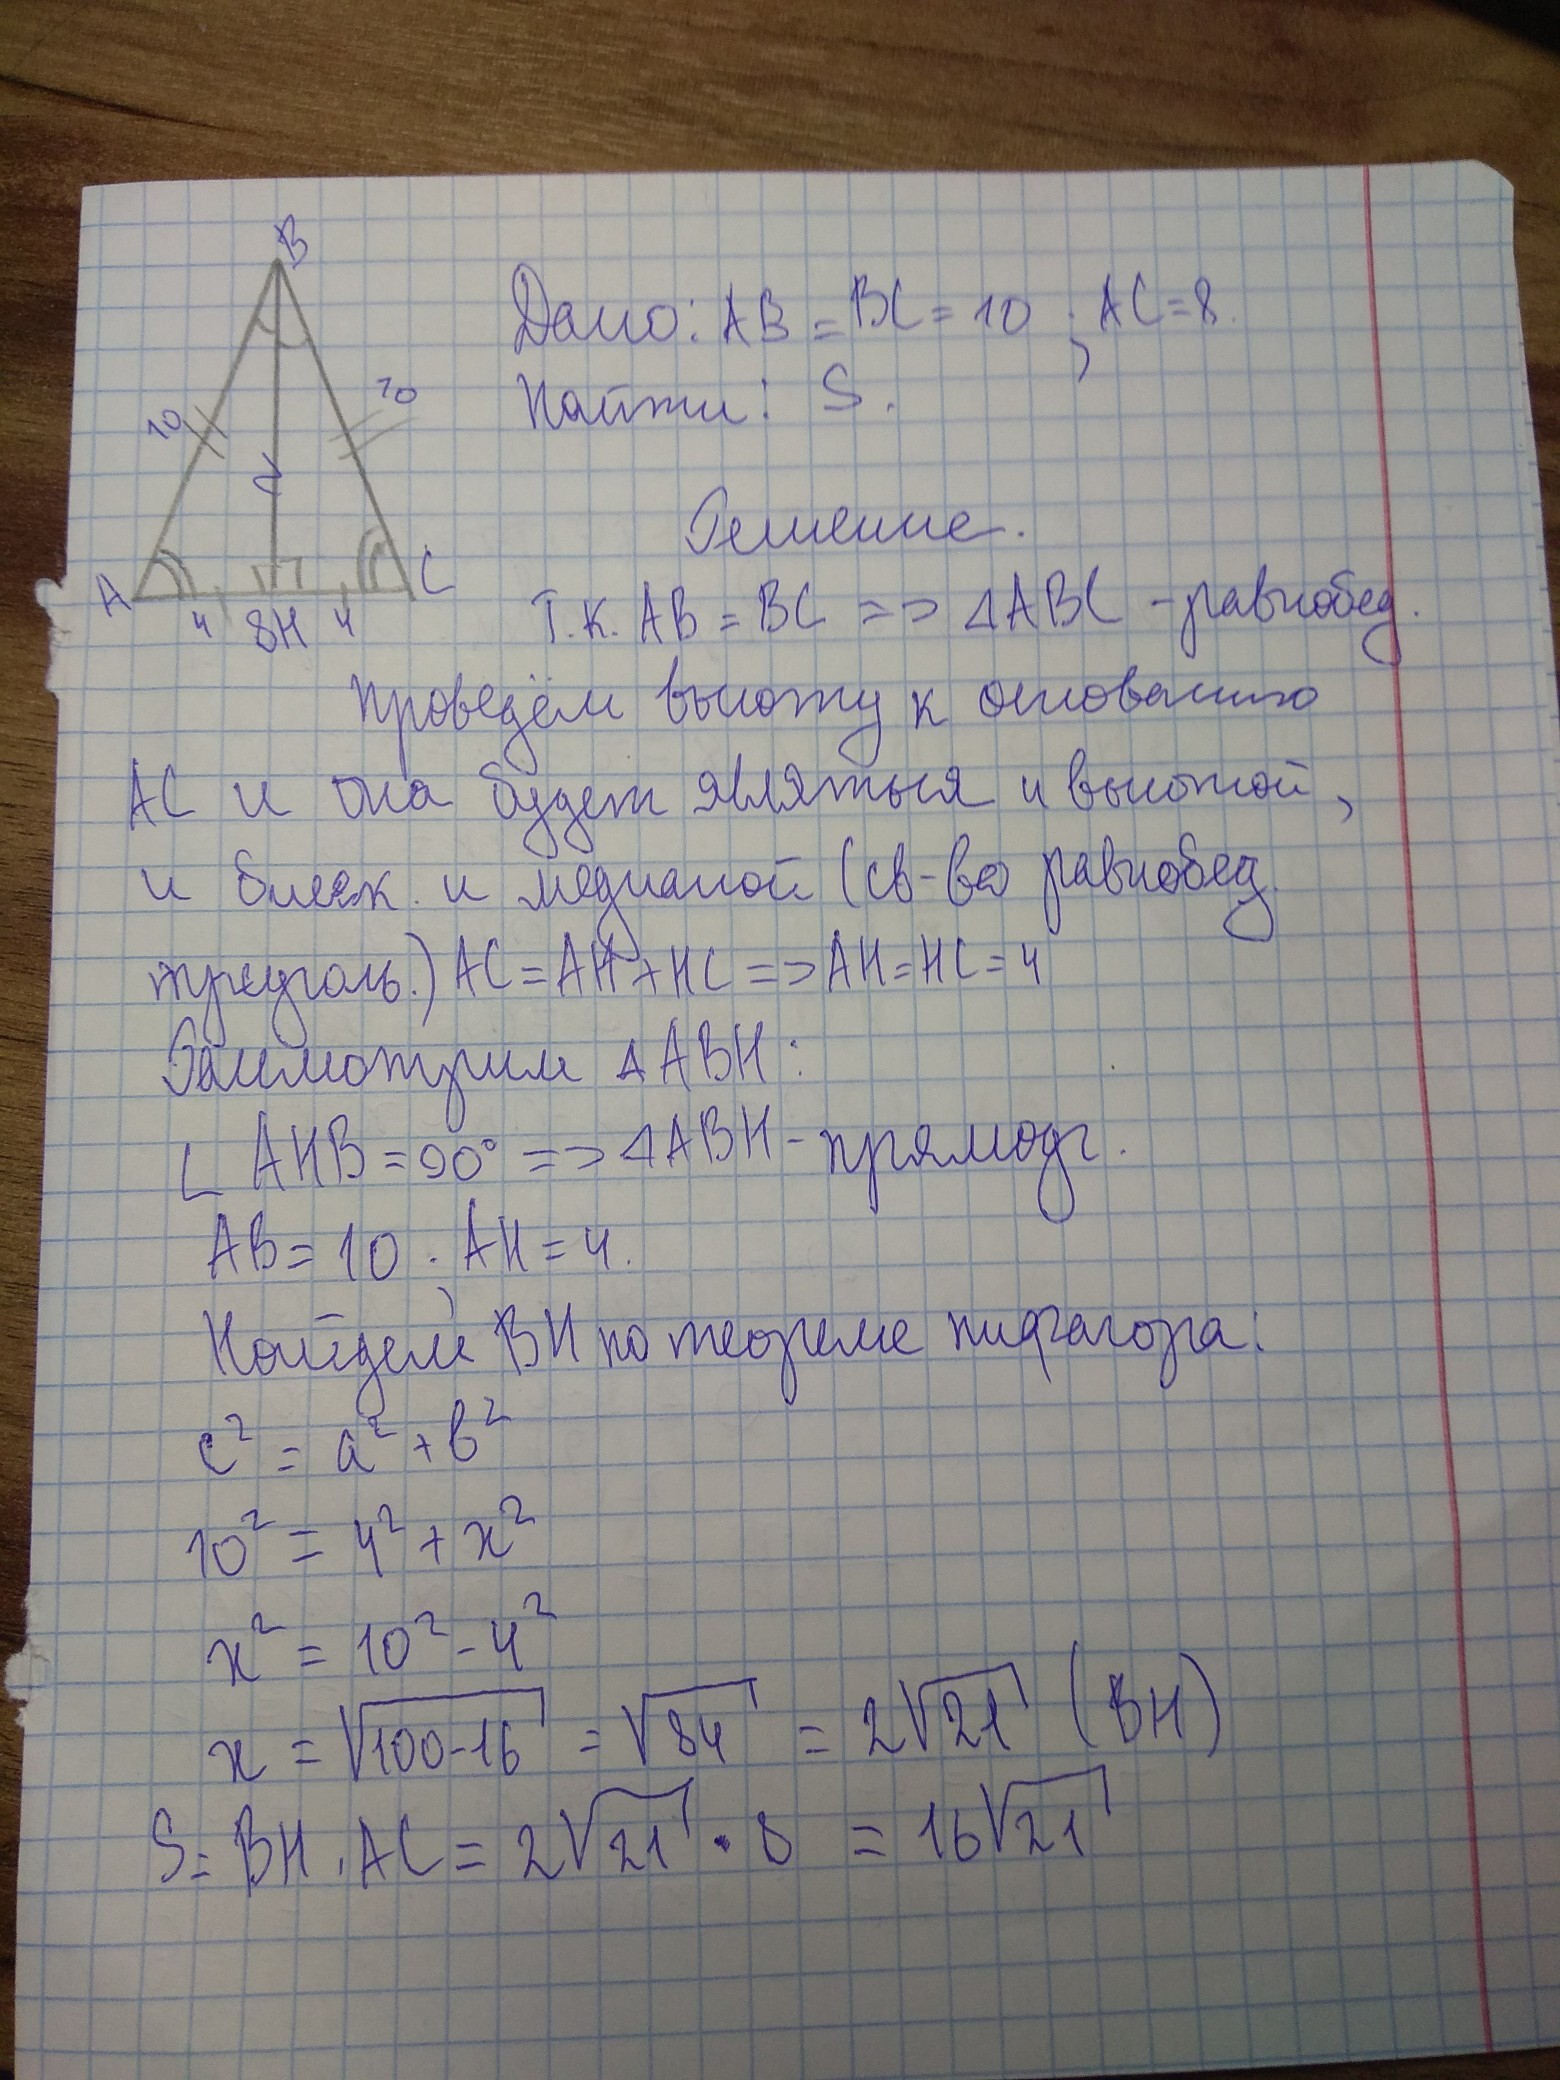 B
10
10
A
4 8H 4
C
Дано: AB = BC = 10 ; AC = 8.
Найти: S.
Решение.
Т.к. AB = BC => ΔABC - равнобед.
Проведём высоту к основанию
AC и она будет являться и высотой,
и бисек. и медианой (св-во равнобед.
треуголь.) AC = AH + HC => AH = HC = 4
Рассмотрим ΔABH:
∟ AHB = 90° => ΔABH - прямоуг.
AB = 10 ; AH = 4.
Найдем BH по теореме пифагора:
c² = a² + b²
10² = 4² + x²
x² = 10² - 4²
x = √100-16 = √84 = 2√21 (BH)
S = BH . AC = 2√21 · 8 = 16√21